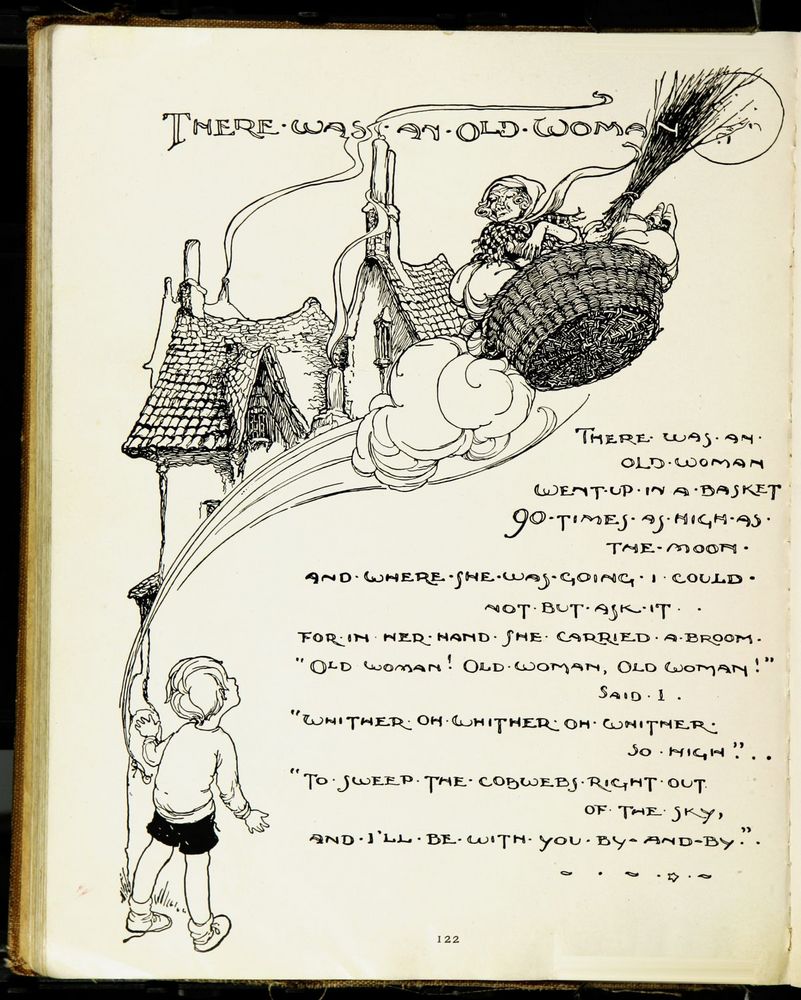 THERE · WAS · AN · OLD · WOMAN
THERE · WAS · AN ·
OLD · WOMAN
WENT · UP · IN A · BASKET
90 · TIMES · AS · HIGH · AS ·
THE · MOON ·
AND · WHERE · SHE · WAS · GOING · I · COULD ·
NOT · BUT · ASK · IT · ·
FOR · IN HER · HAND · SHE · CARRIED · A · BROOM ·
"OLD WOMAN! OLD · WOMAN, OLD WOMAN!"
SAID · I .
"WHITHER · OH · WHITHER · OH · WHITHER ·
SO · HIGH"? . .
"TO · SWEEP · THE · COBWEBS · RIGHT · OUT
OF · THE · SKY,
AND · I'LL · BE · WITH · YOU · BY - AND - BY." ·
122